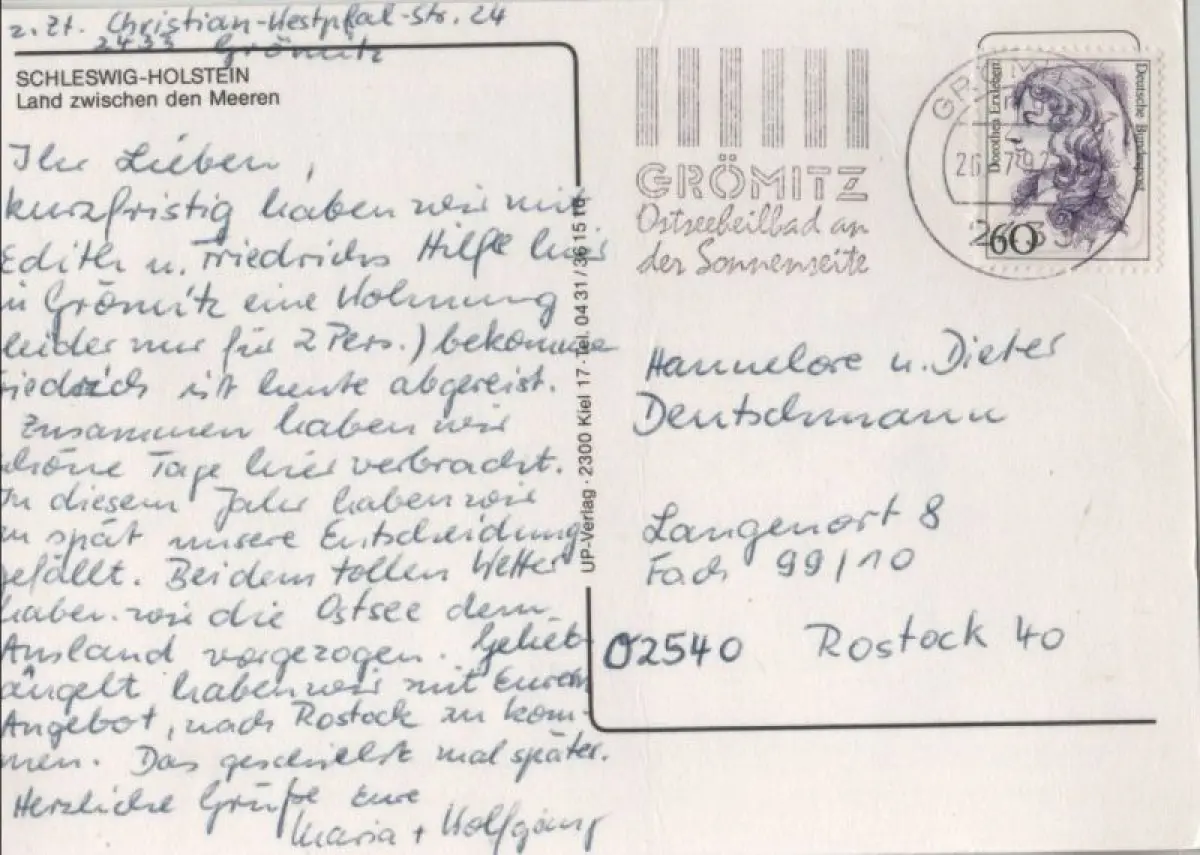 z. Zt. Christian-Westpfal-Str. 24
2433 Grömitz
SCHLESWIG-HOLSTEIN
Land zwischen den Meeren
Ihr Lieben,
kurzfristig haben wir mit
Edith u. Friedrichs Hilfe hier
in Grömitz eine Wohnung
(leider nur für 2 Pers.) bekommen
riedrich ist heute abgereist.
Zusammen haben wir
schöne Tage hier verbracht.
In diesem Jahr haben wir
zu spät unsere Entscheidung
gefällt. Bei dem tollen Wetter
haben wir die Ostsee dem
Ausland vorgezogen. Gelieb-
ängelt haben wir mit Eurem
Angebot, nach Rostock zu kom-
men. Das geschieht mal später.
Herzliche Grüße Eure
Maria + Wolfgang
UP-Verlag · 2300 Kiel 17 · Tel. 04 31 / 36 15 16
GRÖMITZ
Ostseeheilbad an
der Sonnenseite
GRÖMITZ 1
2433
Dorothea Erxleben
Deutsche Bundespost
60
Hannelore u. Dieter
Deutschmann
Langenort 8
Fach 99/10
O2540 Rostock 40